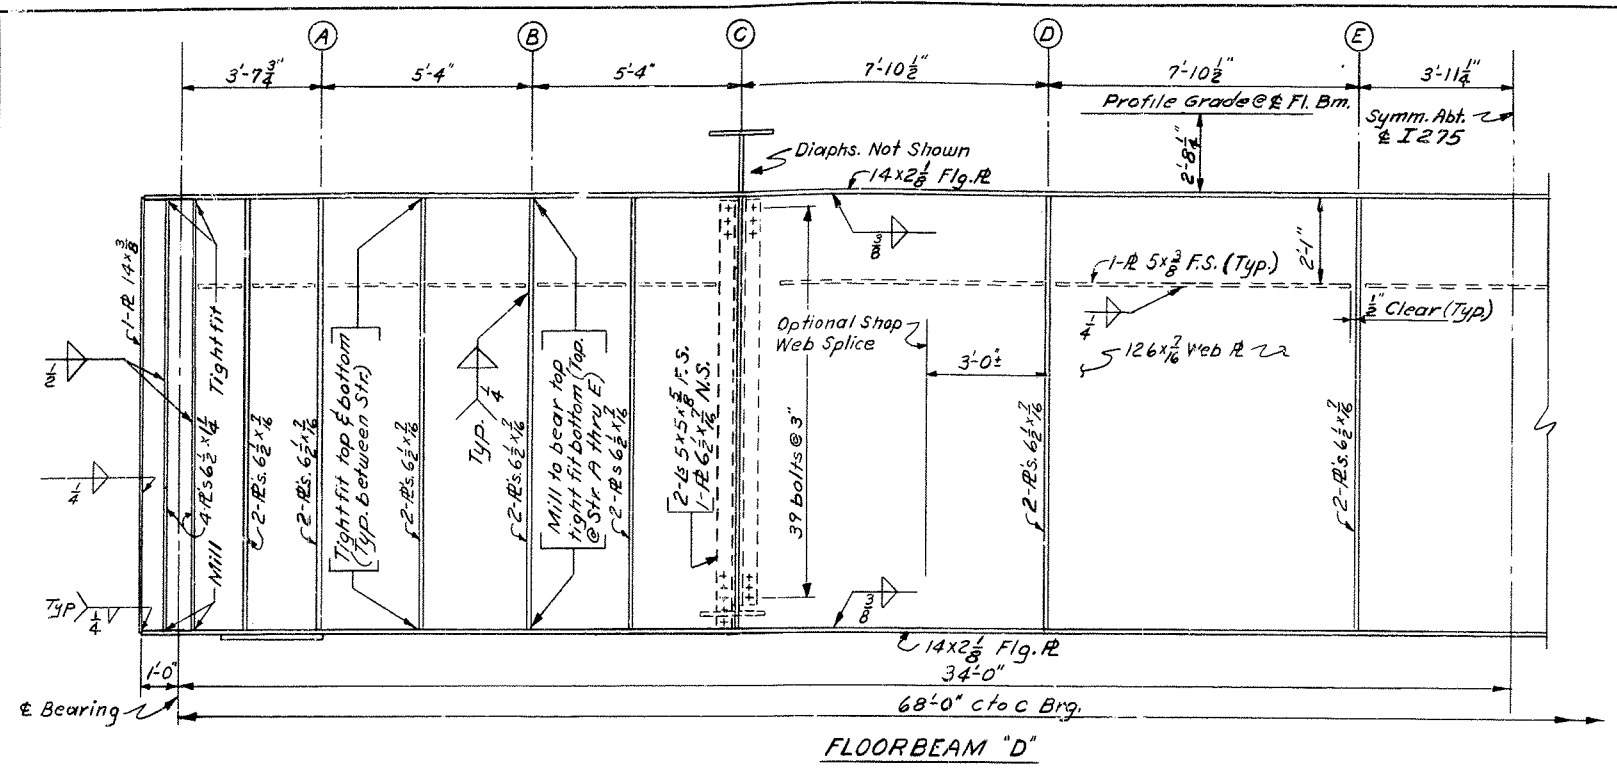 A
B
C
D
E
3'-7 3/4"
5'-4"
5'-4"
7'-10 1/2"
7'-10 1/2"
3'-11 1/4"
Profile Grade @ ℄ Fl. Bm.
Symm. Abt.
℄ I 275
Diaphs. Not Shown
14x2 1/8 Flg. ℄
2'-8 1/4"
3/8
2'-1"
1-℄ 14x3/8
1-℄ 5x3/8 F.S. (Typ.)
1/4
1/2" Clear (Typ.)
Optional Shop
Web Splice
3'-0"±
126x7/16 Web ℄
1/2
1/4
Typ
1/4
4-℄s 6 1/2 x 1 1/4
Tight fit
Mill
2-℄s. 6 1/2 x 7/16
2-℄s. 6 1/2 x 7/16
Tight fit top & bottom
(Typ. between Str.)
2-℄s. 6 1/2 x 7/16
Typ.
1/4
2-℄s. 6 1/2 x 7/16
Mill to bear top
tight fit bottom (Typ.
@ Str. A thru E)
2-℄s 6 1/2 x 7/16
2-Ls 5x5x5/8 F.S.
1-℄ 6 1/2 x 7/16 N.S.
39 bolts @ 3"
2-℄s. 6 1/2 x 7/16
2-℄s. 6 1/2 x 7/16
3/8
14x2 1/8 Flg. ℄
1'-0"
34'-0"
℄ Bearing
68'-0" C to C Brg.
FLOORBEAM "D"